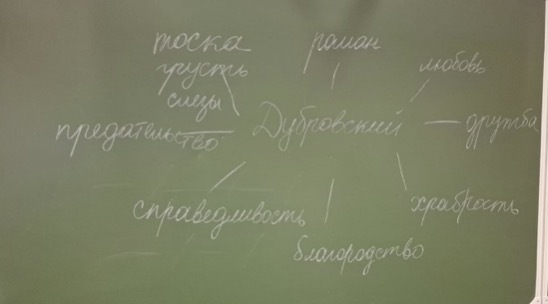 тоска
грусть
слезы
роман
любовь
предательство
Дубровский
дружба
справедливость
храбрость
благородство